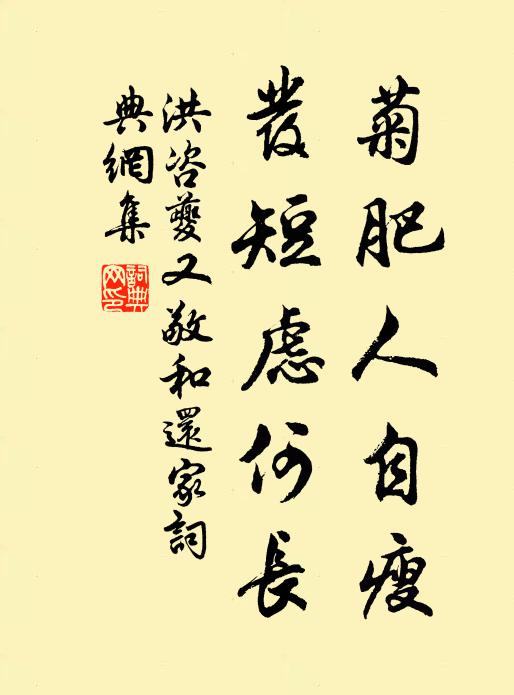 菊肥人自瘦
發短慮何長
洪咨夔又敬和還家詞
典網集
詞典網印